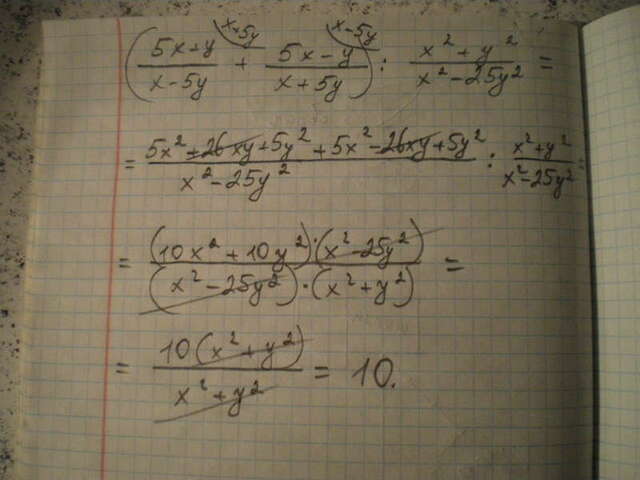 x+5y x-5y
( 5x+y / x-5y + 5x-y / x+5y ) : x² + y² / x² - 25y² =
= 5x² + 26xy + 5y² + 5x² - 26xy + 5y² / x² - 25y² : x² + y² / x² - 25y² =
= (10x² + 10y²) · (x² - 25y²) / (x² - 25y²) · (x² + y²) =
= 10(x² + y²) / x² + y² = 10.